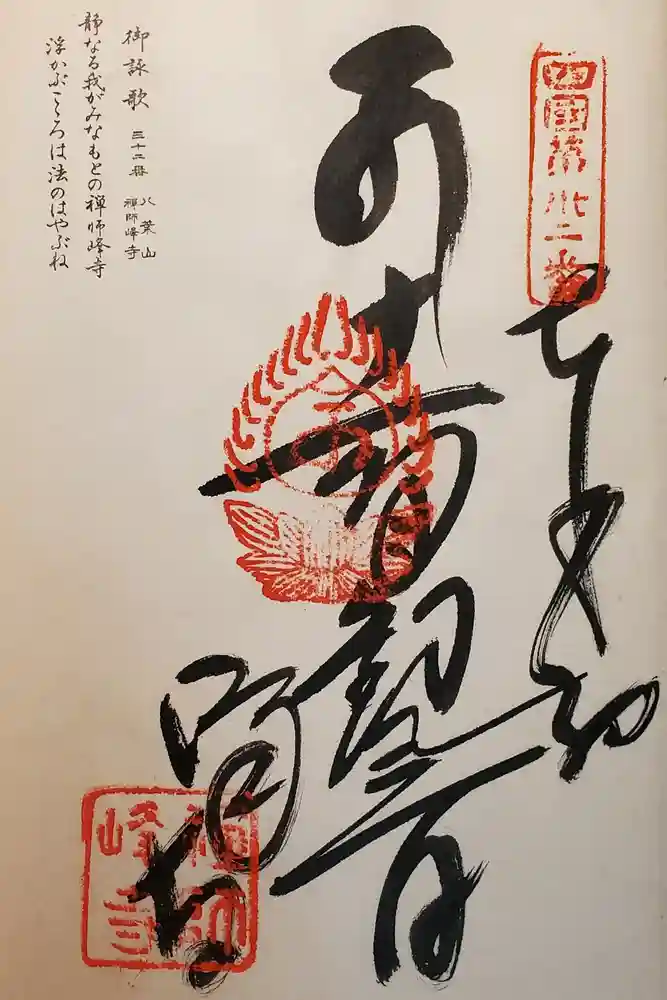 四国第卅二番
奉納
十一面観音
峰寺
禅師
峰寺
御詠歌 三十二番 八葉山 禅師峰寺
静なる我がみなもとの禅師峰寺
浮かぶこころは法のはやぶね